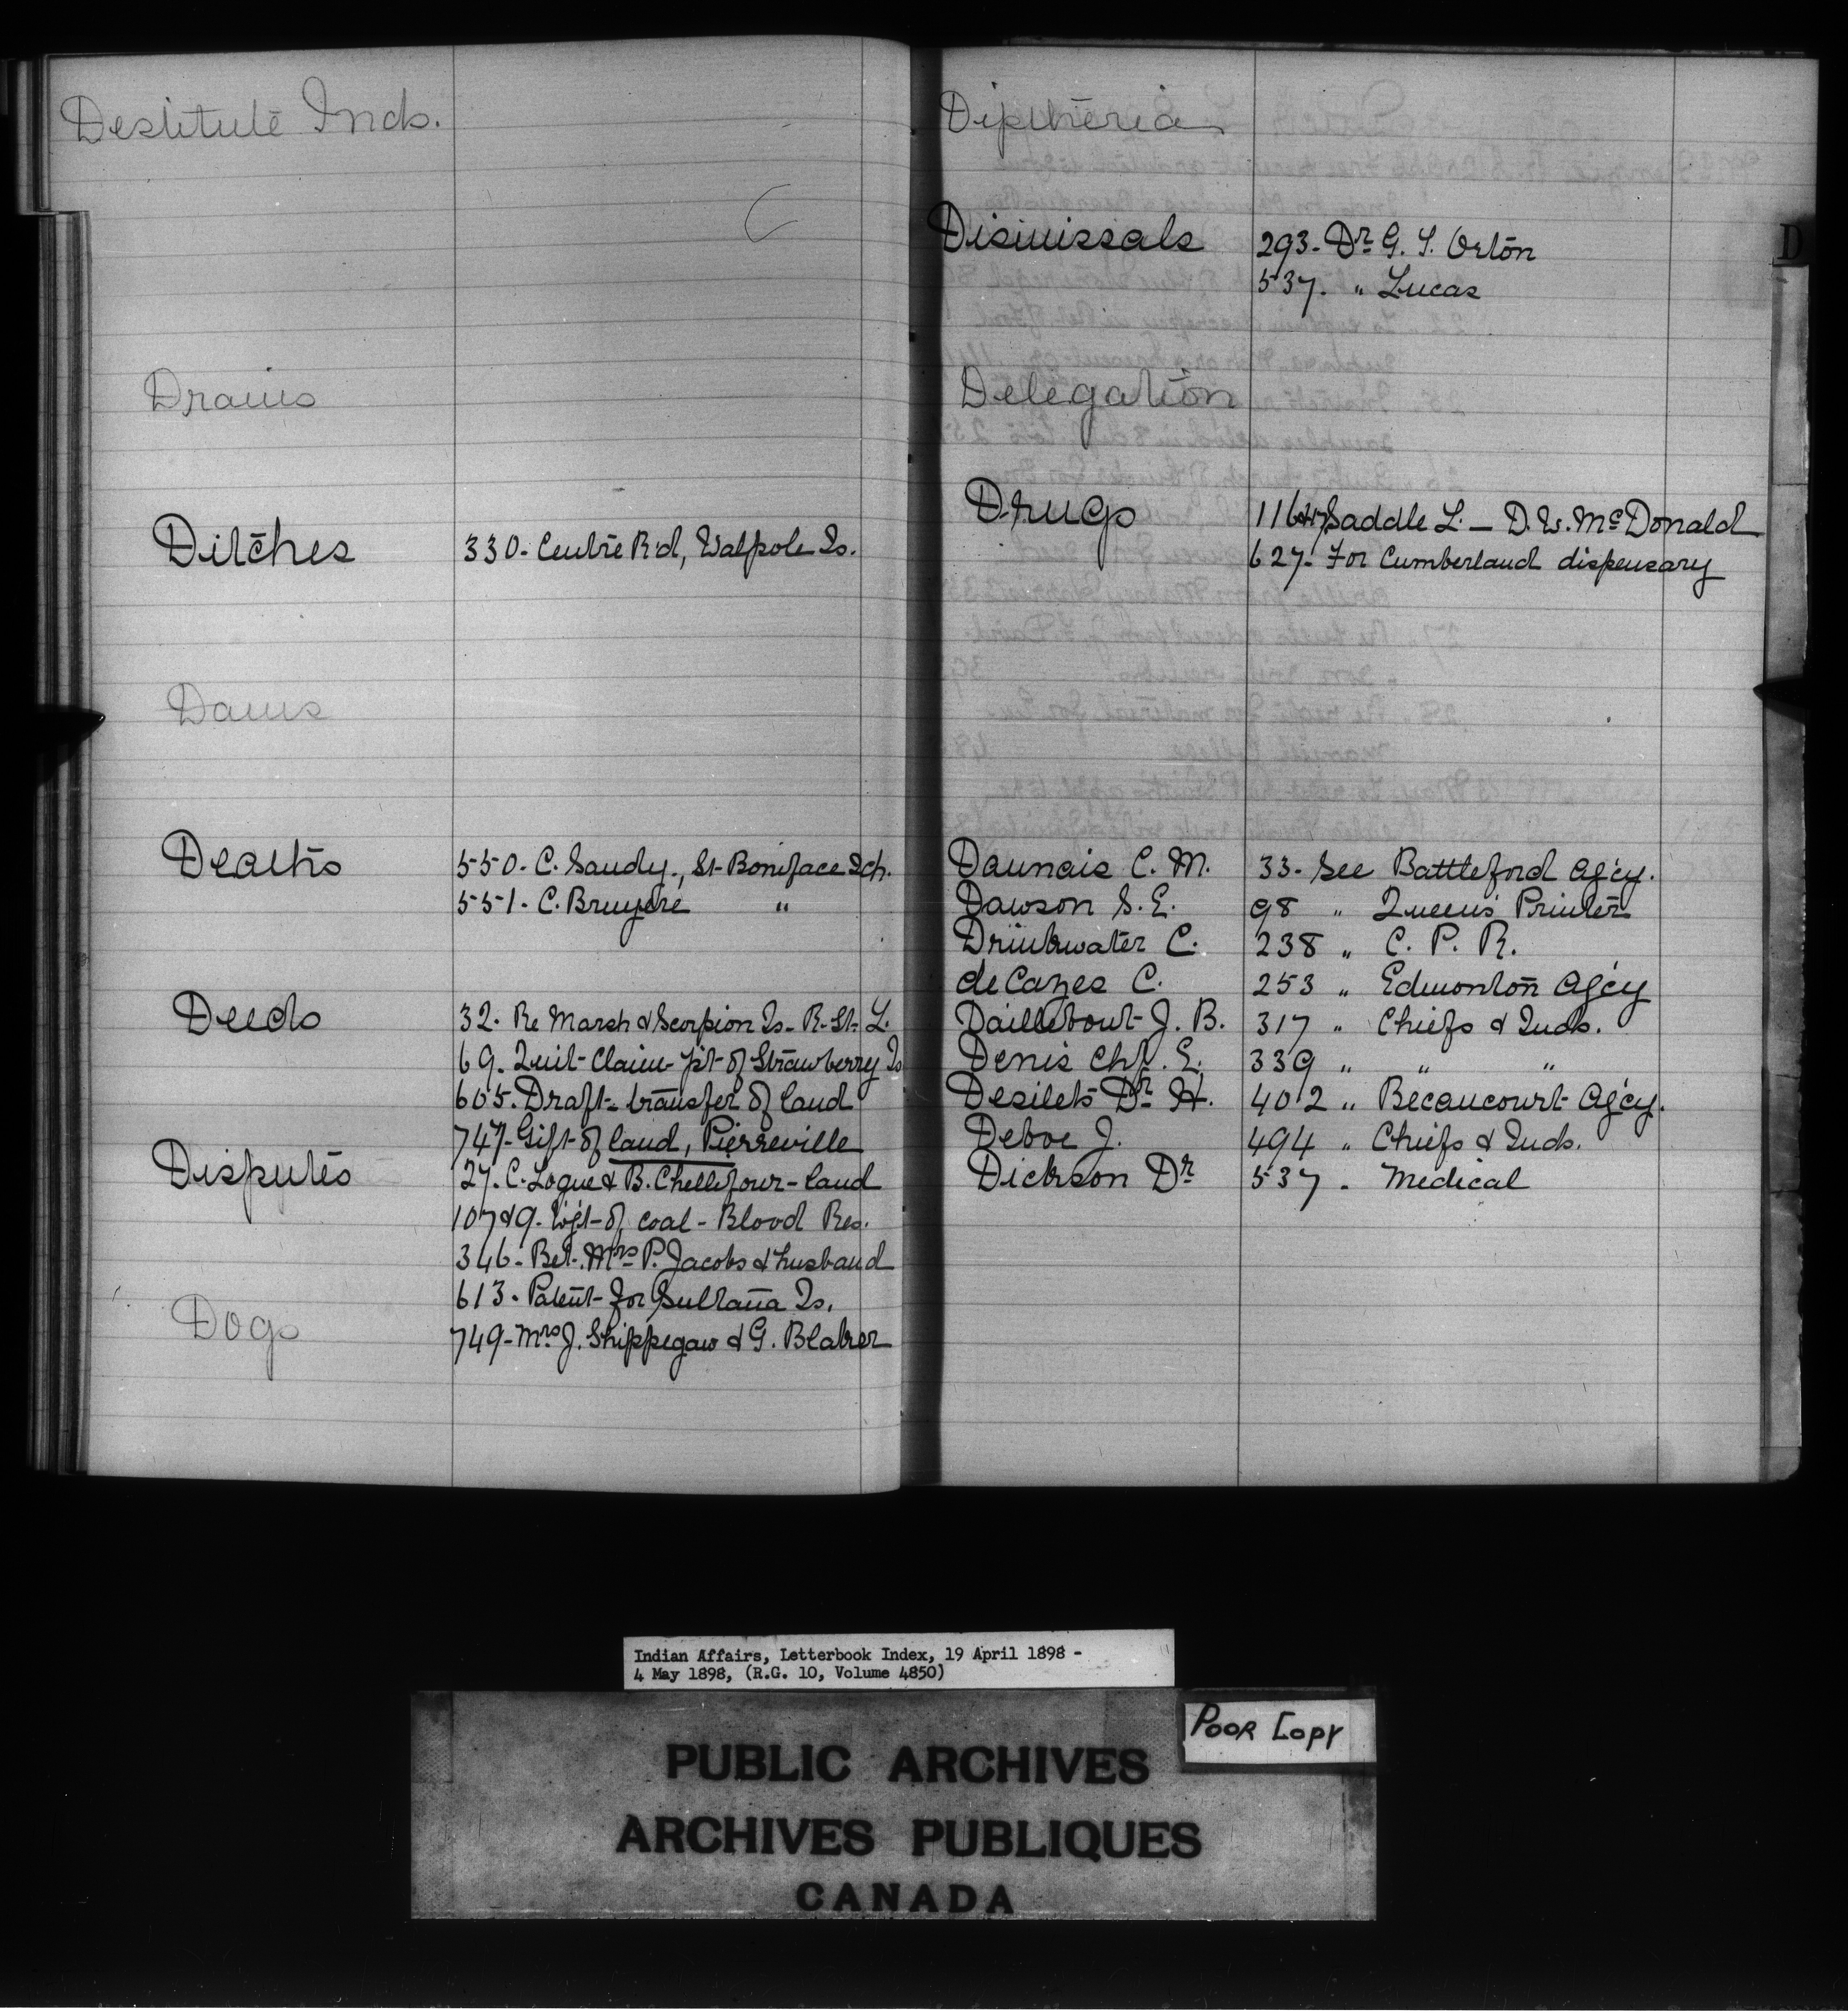 Destitute Inds.
Drains
Ditches 330. Centre Rd, Walpole Is.
Dams
Deaths 550. C. Saudy., St. Boniface Sch.
551. C. Bruyere "
Deeds 32. Re Marsh & Scorpion Is. R. St. L.
69. Quit-Claim pt of Strawberry Is
605. Draft transfer of land
747. Gift of land, Pierreville
Disputes 27. C. Logue & B. Chellifour - land
107&9. Wgt of coal - Blood Res.
346. Bet. Mrs P. Jacobs & husband
613. Patent for Sultana Is.
Dogs
749. Mrs J. Shippegaw & G. Blaker
Diptheria
Dismissals 293. Dr G. T. Orton
537. " Lucas
Delegation
Drugs 116&17 Saddle L. - D. W. McDonald
627. For Cumberland dispensary
Daunais C. M. 33. See Battleford Ag'cy.
Dawson S. E. 98 " Queen's Printer
Drinkwater C. 238 " C. P. R.
de Cazes C. 253 " Edmonton Ag'cy
Daillebout J. B. 317 " Chiefs & Inds.
Denis Chf. E. 339 " " "
Desilets Dr H. 402 " Becancourt Ag'cy.
Deboe J. 494 " Chiefs & Inds.
Dickson Dr 537 . Medical
D
Indian Affairs, Letterbook Index, 19 April 1898 -
4 May 1898, (R.G. 10, Volume 4850)
POOR COPY
PUBLIC ARCHIVES
ARCHIVES PUBLIQUES
CANADA